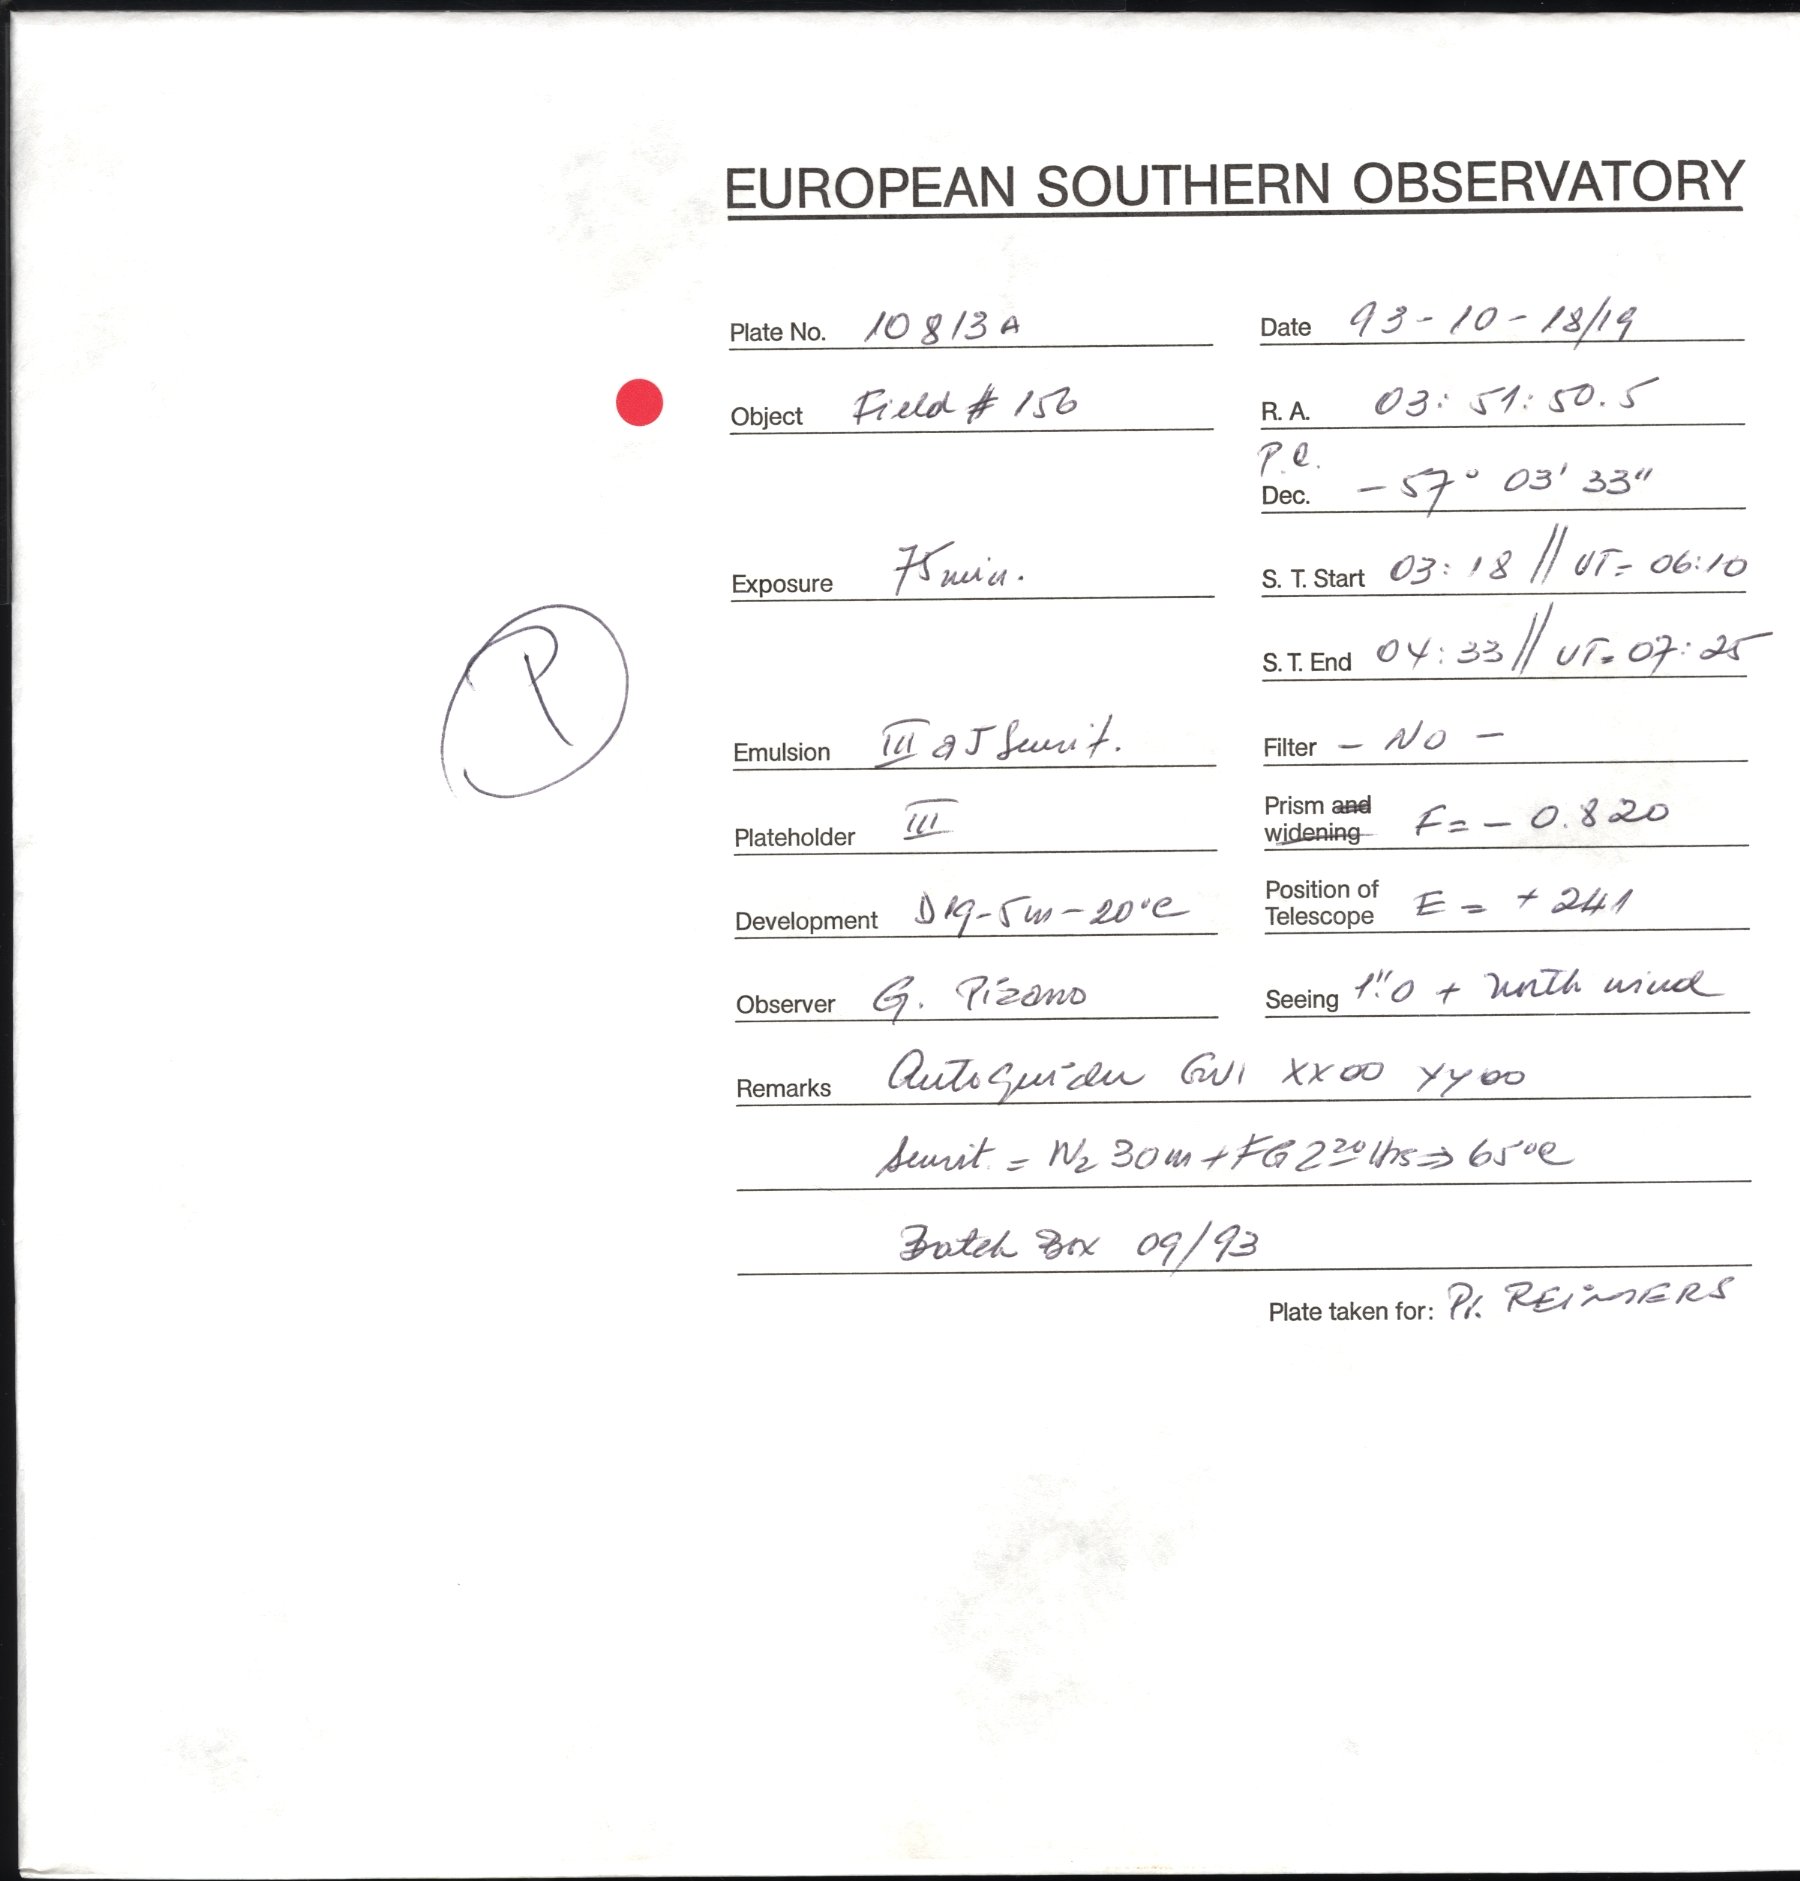 EUROPEAN SOUTHERN OBSERVATORY
Plate No. 10813A
Date 93-10-18/19
Object Field # 156
R. A. 03: 51: 50.5
P.C.
Dec. - 57° 03' 33"
Exposure 75 min.
S. T. Start 03: 18 // UT= 06:10
P
S. T. End 04: 33 // UT= 07: 25
Emulsion III aJ Sensit.
Filter - NO -
Plateholder III
Prism and widening F= - 0.820
Development D19-5m-20°C
Position of Telescope E = + 241
Observer G. Pizarro
Seeing 1".0 + North wind
Remarks Autoguider GW1 XX00 YY00
Sensit. = N2 30m + FG 2 20 Hrs => 65°C
Batch Box 09/93
Plate taken for: Pr. REIMERS